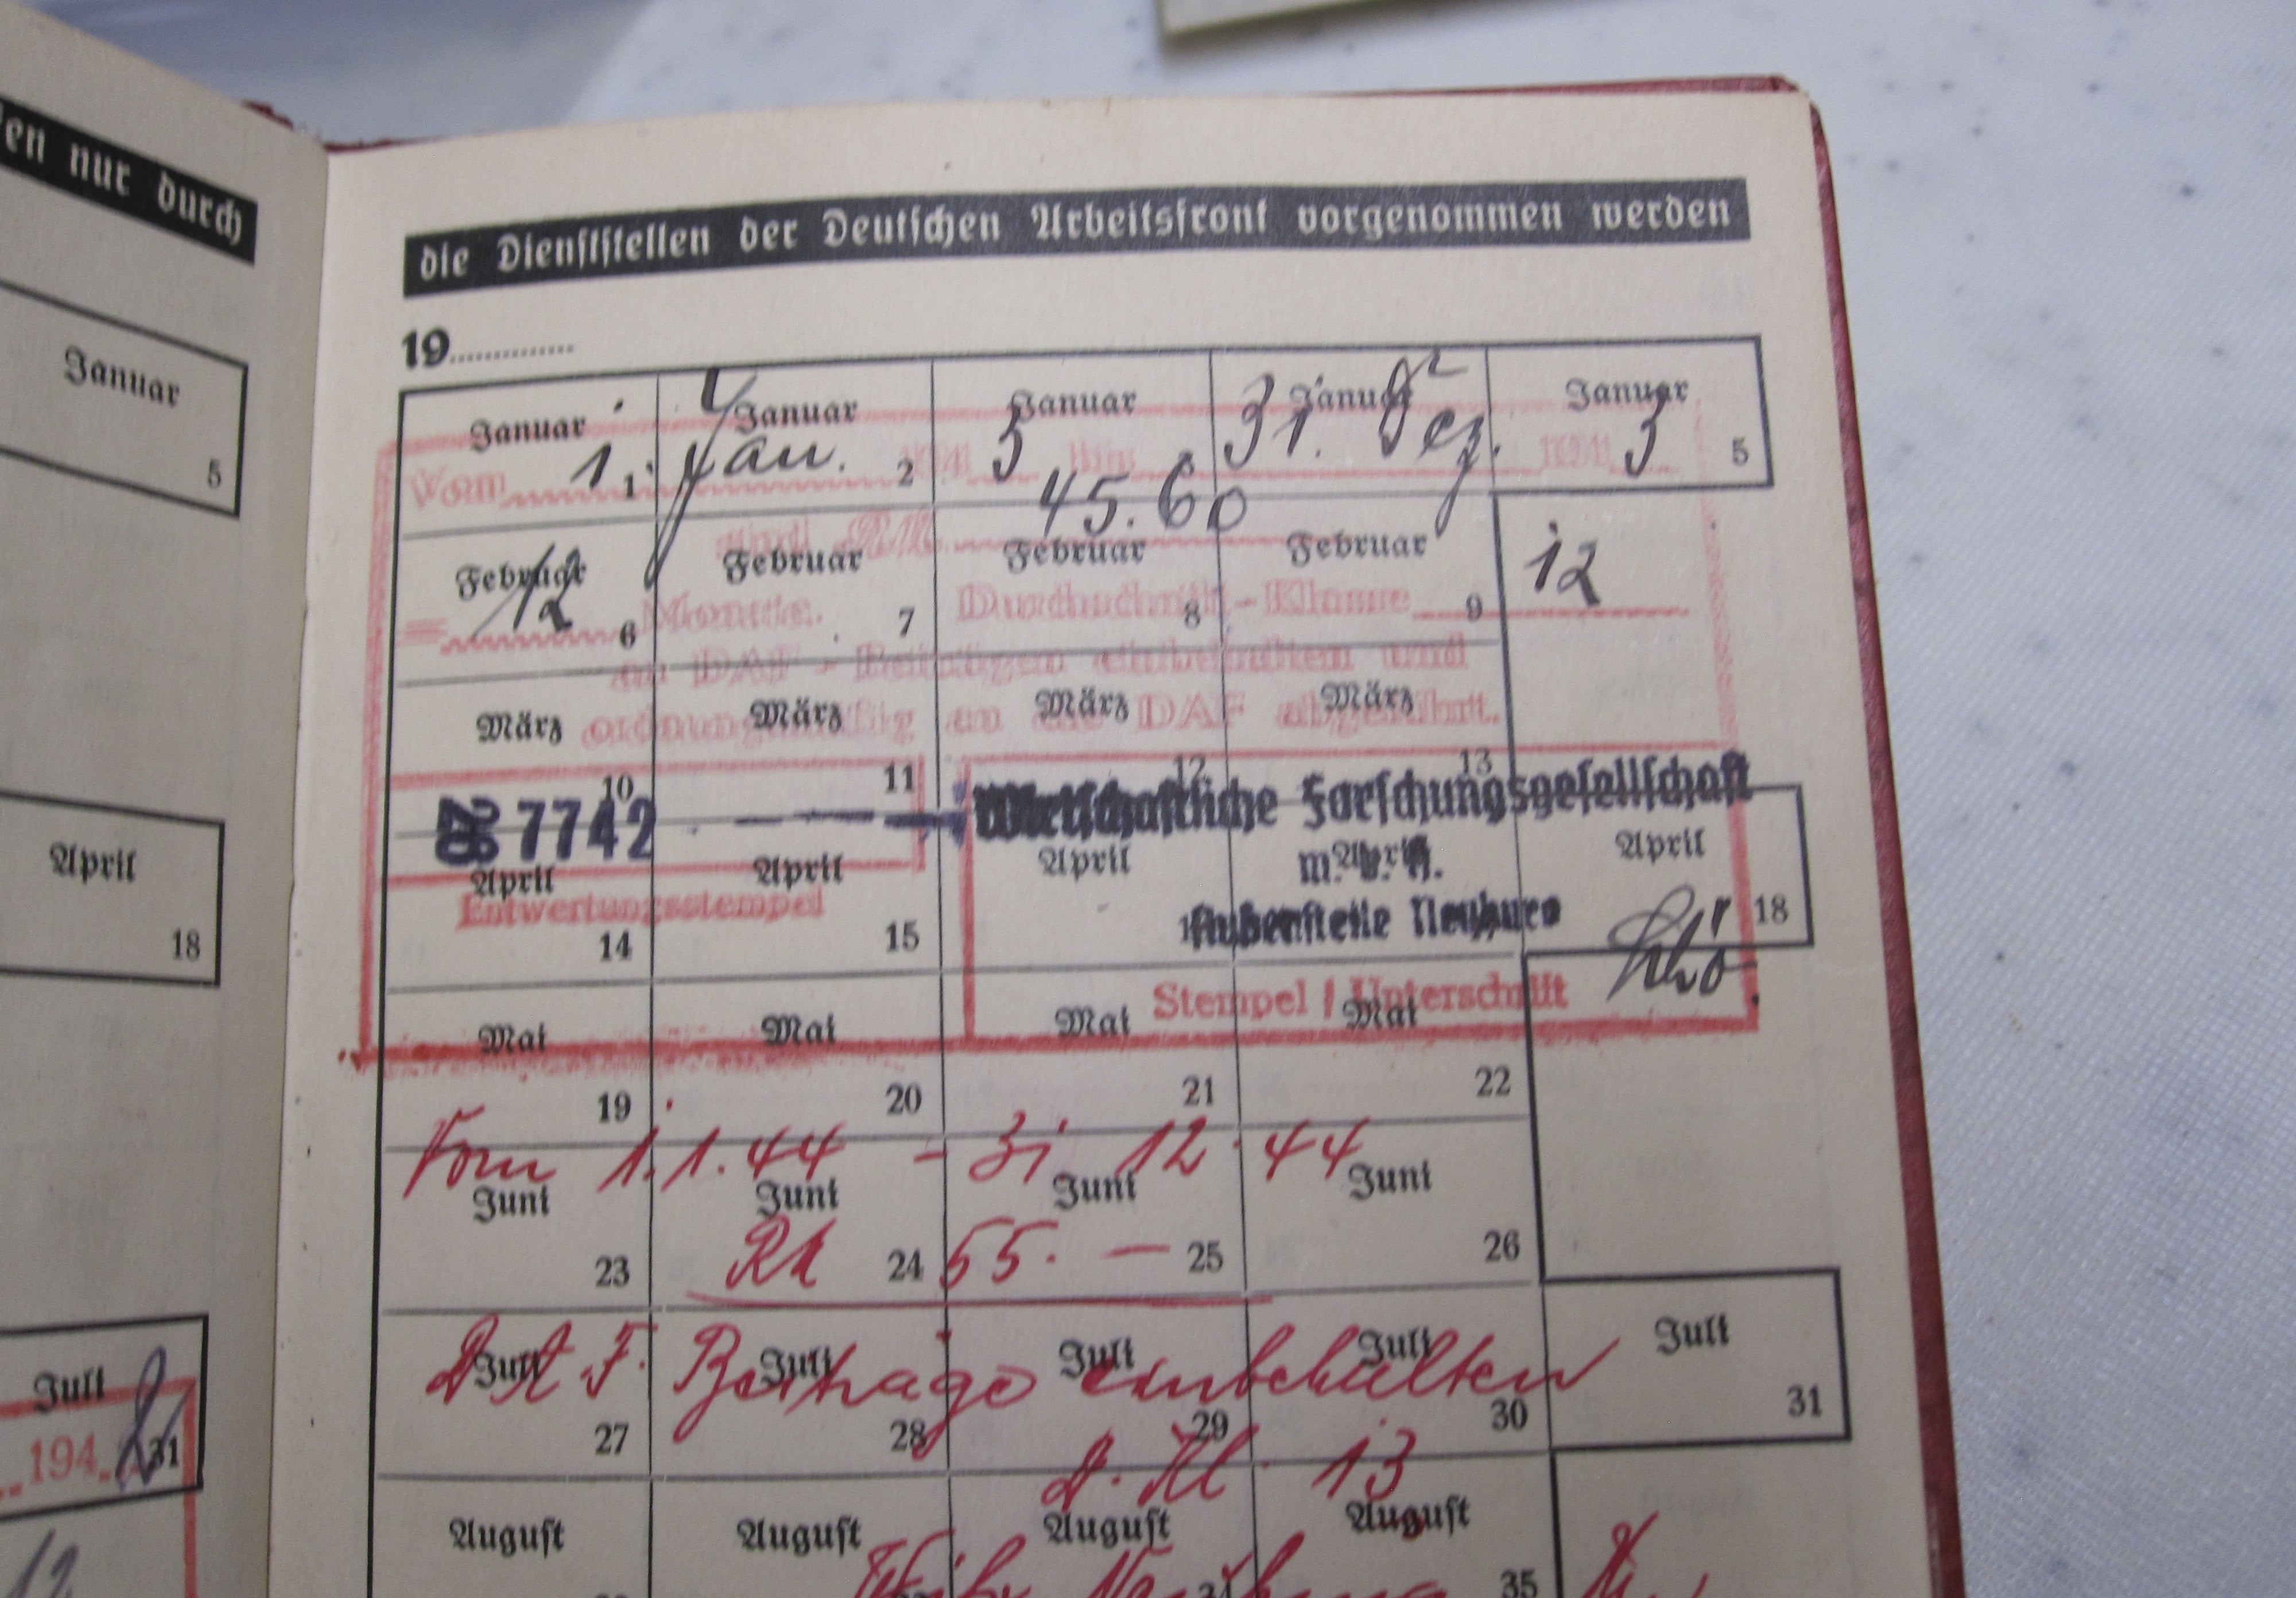 en nur durch
Januar
5
April
18
Juli
194
31
12
die Dienststellen der Deutschen Arbeitsfront vorgenommen werden
19
Januar Januar Januar Januar Januar
Vom 1. Jan. 194 3 bis 31. Dez. 194 3
1 2 5
sind RM 45.60
Februar Februar Februar Februar
= 12 Monate. Durchschnitt-Klasse 12
6 7 8 9
an DAF-Beiträgen einbehalten und
März März März März
ordnungsmäßig an die DAF abgeführt.
10 11 12 13
7742 Wirtschaftliche Forschungsgesellschaft
m. b. H.
April April April April April
Entwertungsstempel
Außenstelle Neuburg
14 15 18
Stempel / Unterschrift
Mai Mai Mai Mai
19 20 21 22
Vom 1.1.44 - 31 12. 44
Juni Juni Juni Juni
23 24 25 26
55. —
Juli Juli Juli Juli Juli
D A F. Beiträge einbehalten
27 28 29 30 31
D. Kl. 13
August August August August
34 35